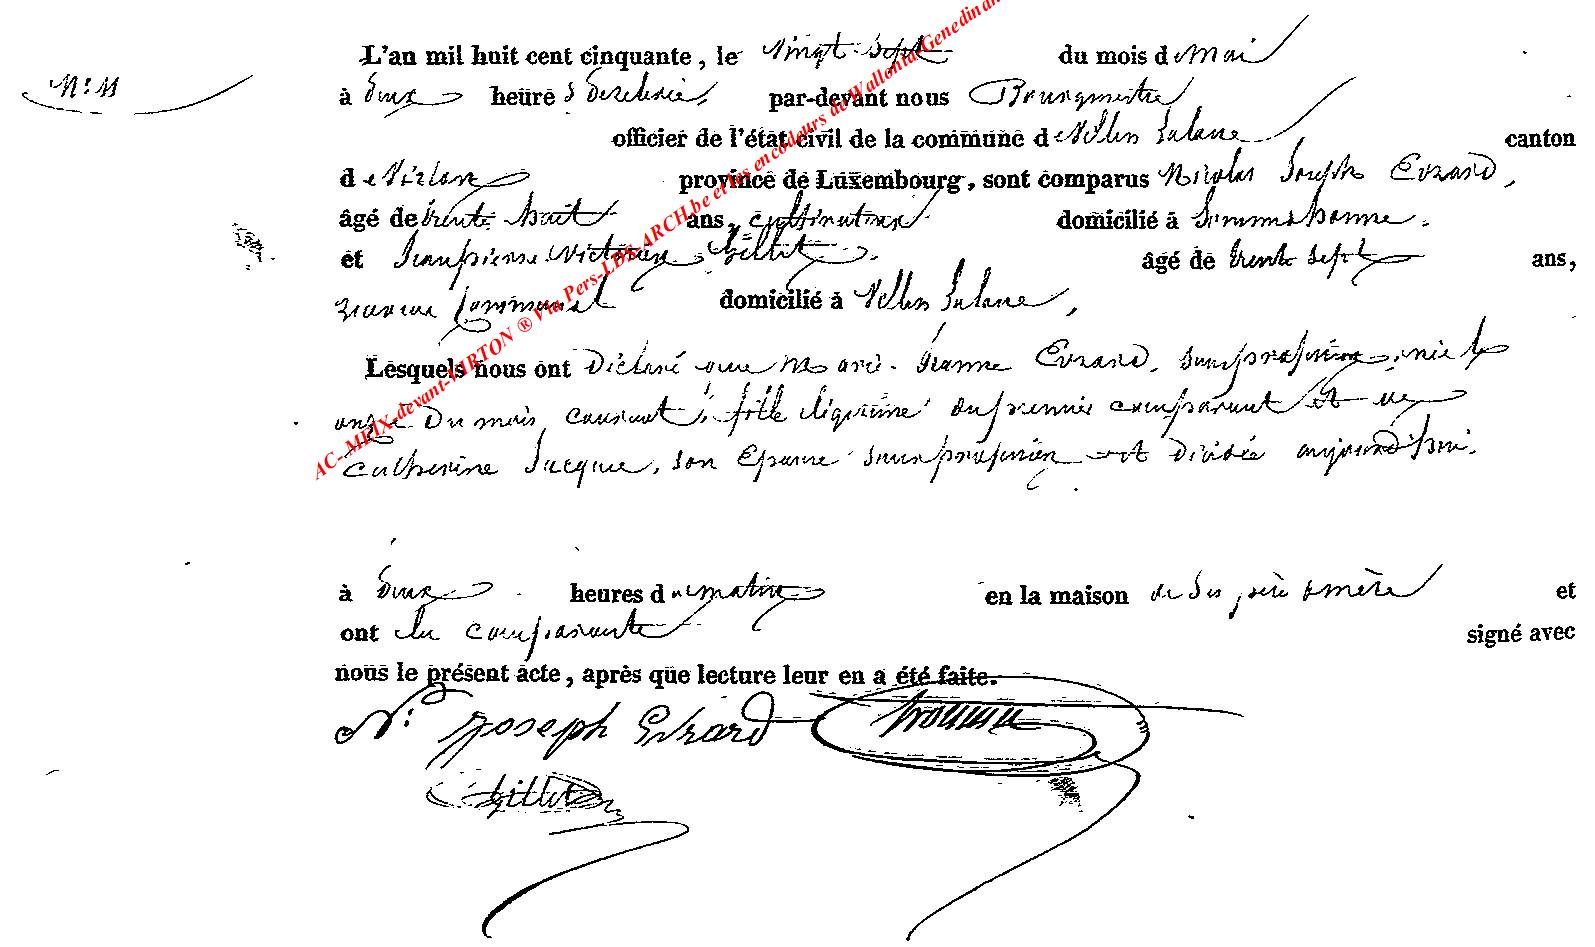 N.º 11
L'an mil huit cent cinquante, le Vingt Sept du mois de Mai
à deux heures de relevée, par-devant nous Bourgmestre
officier de l'état civil de la commune de Villers Laloue canton
de Virton province de Luxembourg, sont comparus Nicolas Joseph Evrard,
âgé de trente huit ans, cultivateur domicilié à Sommethonne,
et Jean pierre Victorien Gillet, âgé de trente sept ans,
communal domicilié à Villers Laloue,
Lesquels nous ont Déclaré que Marie Jeanne Evrard, sans profession, née le
onze Du mois courant, fille légitime du premier comparant et de
Catherine Jacque, son Epouse sans profession est décédée aujourd'hui.
à deux heures du matin en la maison de Ses père & mère et
ont les comparants signé avec
nous le présent acte, après que lecture leur en a été faite.
N.s Joseph Evrard
Gillet
AC-MEIX-devant-VIRTON ® Via Pers-LDS-ARCH.be et les encodeurs de Wallonia Genedinan